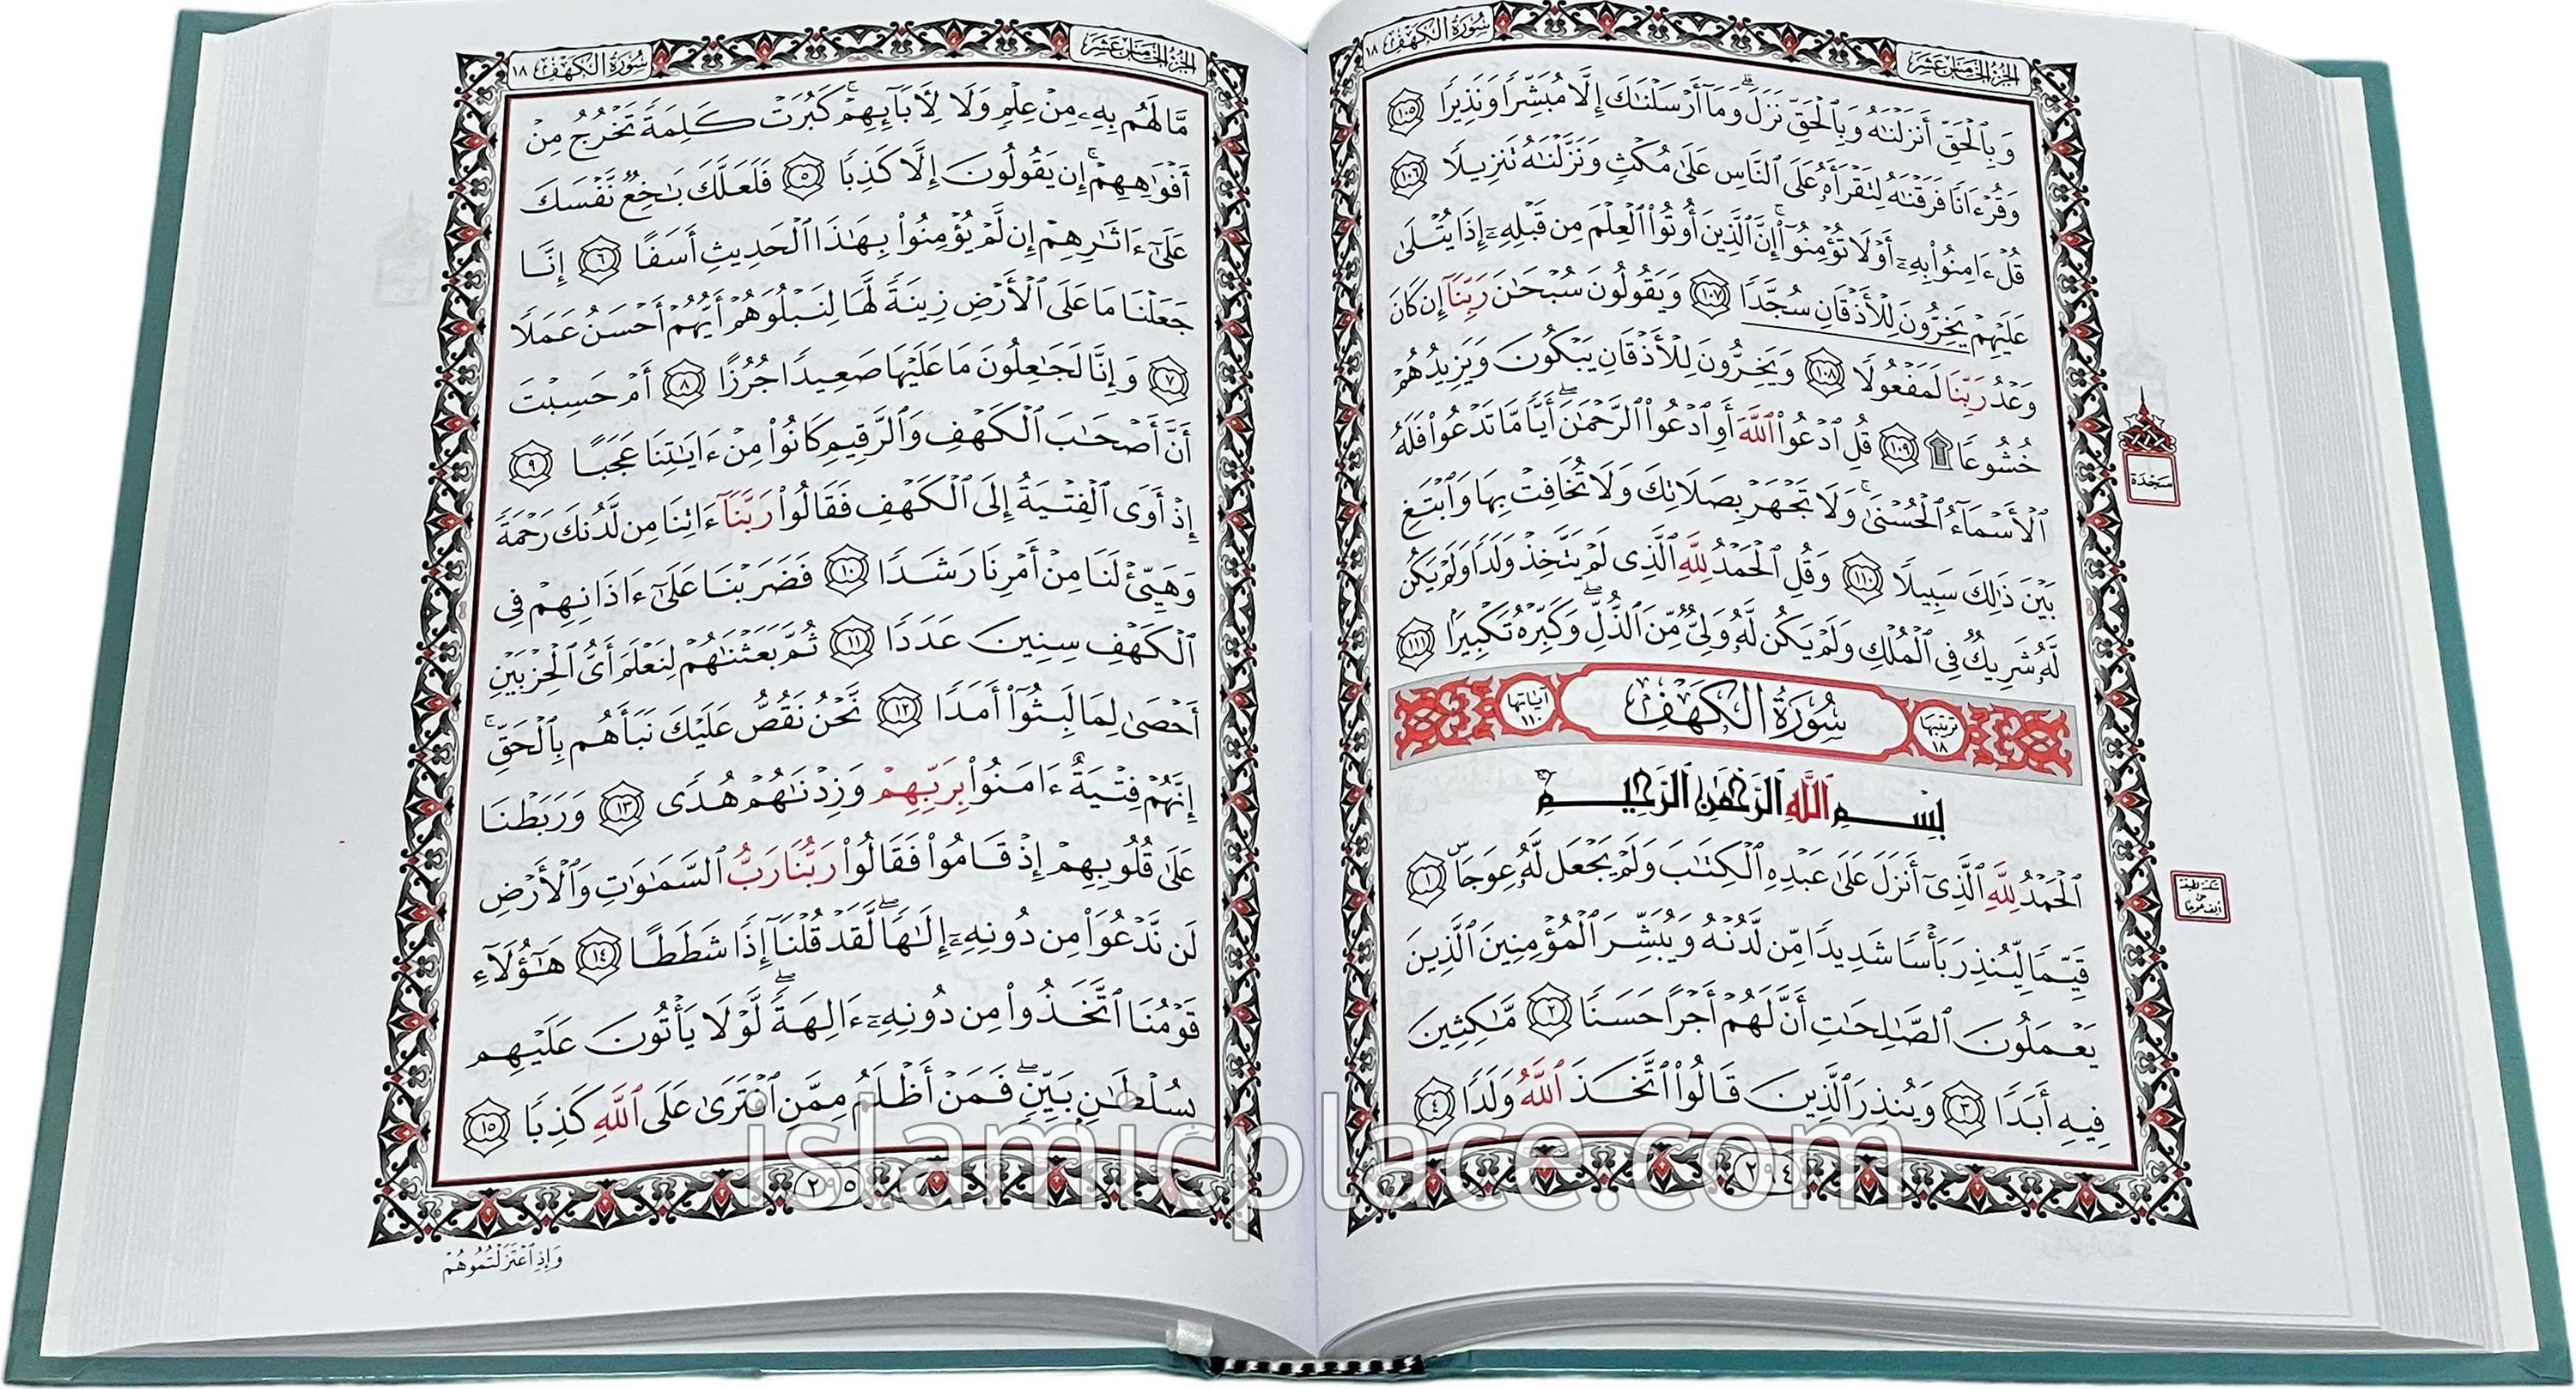 سُورَةُ الكَهْفِ ١٨
الجُزْءُ الخَامِسَ عَشَرَ
وَبِٱلْحَقِّ أَنزَلْنَٰهُ وَبِٱلْحَقِّ نَزَلَ ۗ وَمَآ أَرْسَلْنَٰكَ إِلَّا مُبَشِّرًا وَنَذِيرًا ١٠٥
وَقُرْءَانًا فَرَقْنَٰهُ لِتَقْرَأَهُۥ عَلَى ٱلنَّاسِ عَلَىٰ مُكْثٍ وَنَزَّلْنَٰهُ تَنزِيلًا ١٠٦
قُلْ ءَامِنُوا۟ بِهِۦٓ أَوْ لَا تُؤْمِنُوٓا۟ ۚ إِنَّ ٱلَّذِينَ أُوتُوا۟ ٱلْعِلْمَ مِن قَبْلِهِۦٓ إِذَا يُتْلَىٰ
عَلَيْهِمْ يَخِرُّونَ لِلْأَذْقَانِ سُجَّدًا ١٠٧ وَيَقُولُونَ سُبْحَٰنَ رَبِّنَآ إِن كَانَ
وَعْدُ رَبِّنَا لَمَفْعُولًا ١٠٨ وَيَخِرُّونَ لِلْأَذْقَانِ يَبْكُونَ وَيَزِيدُهُمْ
خُشُوعًا ۩ ١٠٩ قُلِ ٱدْعُوا۟ ٱللَّهَ أَوِ ٱدْعُوا۟ ٱلرَّحْمَٰنَ ۖ أَيًّا مَّا تَدْعُوا۟ فَلَهُ
ٱلْأَسْمَآءُ ٱلْحُسْنَىٰ ۚ وَلَا تَجْهَرْ بِصَلَاتِكَ وَلَا تُخَافِتْ بِهَا وَٱبْتَغِ
بَيْنَ ذَٰلِكَ سَبِيلًا ١١٠ وَقُلِ ٱلْحَمْدُ لِلَّهِ ٱلَّذِى لَمْ يَتَّخِذْ وَلَدًا وَلَمْ يَكُن
لَّهُۥ شَرِيكٌ فِى ٱلْمُلْكِ وَلَمْ يَكُن لَّهُۥ وَلِىٌّ مِّنَ ٱلذُّلِّ ۖ وَكَبِّرْهُ تَكْبِيرًۢا ١١١
ترتيبها ١٨ سُورَةُ الكَهْفِ آياتها ١١٠
بِسْمِ ٱللَّهِ ٱلرَّحْمَٰنِ ٱلرَّحِيمِ
ٱلْحَمْدُ لِلَّهِ ٱلَّذِىٓ أَنزَلَ عَلَىٰ عَبْدِهِ ٱلْكِتَٰبَ وَلَمْ يَجْعَل لَّهُۥ عِوَجَاۜ ١
قَيِّمًا لِّيُنذِرَ بَأْسًا شَدِيدًا مِّن لَّدُنْهُ وَيُبَشِّرَ ٱلْمُؤْمِنِينَ ٱلَّذِينَ
يَعْمَلُونَ ٱلصَّٰلِحَٰتِ أَنَّ لَهُمْ أَجْرًا حَسَنًا ٢ مَّٰكِثِينَ
فِيهِ أَبَدًا ٣ وَيُنذِرَ ٱلَّذِينَ قَالُوا۟ ٱتَّخَذَ ٱللَّهُ وَلَدًا ٤
٢٩٤
سَجْدَة
سكتة لطيفة
على
ألف عوجا
سُورَةُ الكَهْفِ ١٨
الجُزْءُ الخَامِسَ عَشَرَ
مَّا لَهُم بِهِۦ مِنْ عِلْمٍ وَلَا لِأَبَآئِهِمْ ۚ كَبُرَتْ كَلِمَةً تَخْرُجُ مِنْ
أَفْوَٰهِهِمْ ۚ إِن يَقُولُونَ إِلَّا كَذِبًا ٥ فَلَعَلَّكَ بَٰخِعٌ نَّفْسَكَ
عَلَىٰٓ ءَاثَٰرِهِمْ إِن لَّمْ يُؤْمِنُوا۟ بِهَٰذَا ٱلْحَدِيثِ أَسَفًا ٦ إِنَّا
جَعَلْنَا مَا عَلَى ٱلْأَرْضِ زِينَةً لَّهَا لِنَبْلُوَهُمْ أَيُّهُمْ أَحْسَنُ عَمَلًا
٧ وَإِنَّا لَجَٰعِلُونَ مَا عَلَيْهَا صَعِيدًا جُرُزًا ٨ أَمْ حَسِبْتَ
أَنَّ أَصْحَٰبَ ٱلْكَهْفِ وَٱلرَّقِيمِ كَانُوا۟ مِنْ ءَايَٰتِنَا عَجَبًا ٩
إِذْ أَوَى ٱلْفِتْيَةُ إِلَى ٱلْكَهْفِ فَقَالُوا۟ رَبَّنَآ ءَاتِنَا مِن لَّدُنكَ رَحْمَةً
وَهَيِّئْ لَنَا مِنْ أَمْرِنَا رَشَدًا ١٠ فَضَرَبْنَا عَلَىٰٓ ءَاذَانِهِمْ فِى
ٱلْكَهْفِ سِنِينَ عَدَدًا ١١ ثُمَّ بَعَثْنَٰهُمْ لِنَعْلَمَ أَىُّ ٱلْحِزْبَيْنِ
أَحْصَىٰ لِمَا لَبِثُوٓا۟ أَمَدًا ١٢ نَّحْنُ نَقُصُّ عَلَيْكَ نَبَأَهُم بِٱلْحَقِّ ۚ
إِنَّهُمْ فِتْيَةٌ ءَامَنُوا۟ بِرَبِّهِمْ وَزِدْنَٰهُمْ هُدًى ١٣ وَرَبَطْنَا
عَلَىٰ قُلُوبِهِمْ إِذْ قَامُوا۟ فَقَالُوا۟ رَبُّنَا رَبُّ ٱلسَّمَٰوَٰتِ وَٱلْأَرْضِ
لَن نَّدْعُوَا۟ مِن دُونِهِۦٓ إِلَٰهًا ۖ لَّقَدْ قُلْنَآ إِذًا شَطَطًا ١٤ هَٰٓؤُلَآءِ
قَوْمُنَا ٱتَّخَذُوا۟ مِن دُونِهِۦٓ ءَالِهَةً ۖ لَّوْلَا يَأْتُونَ عَلَيْهِم
بِسُلْطَٰنٍۭ بَيِّنٍ ۖ فَمَنْ أَظْلَمُ مِمَّنِ ٱفْتَرَىٰ عَلَى ٱللَّهِ كَذِبًا ١٥
٢٩٥
وَإِذِ ٱعْتَزَلْتُمُوهُمْ
islamicplace.com